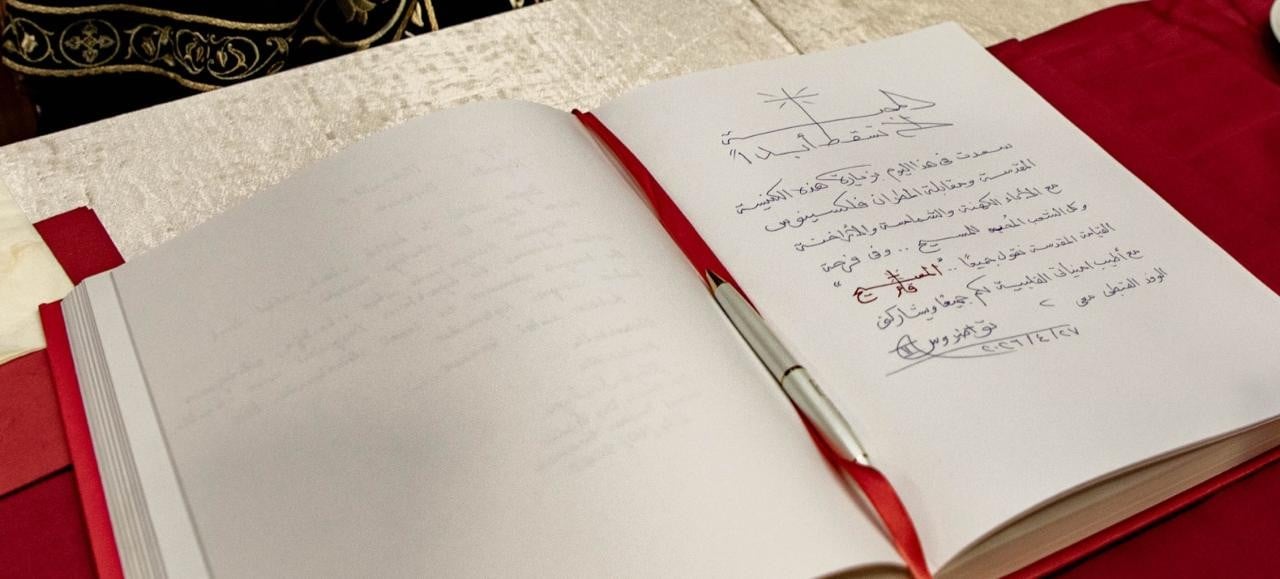 المحبة
لا تسقط أبدا"
سعدت في هذا اليوم بزيارة هذه الكنيسة
المقدسة ومقابلة المطران فلكسينوس
مع الآباء الكهنة والشمامسة والأراخنة
وكل الشعب المحب للمسيح .. وفي فرحة
القيامة المقدسة نقول جميعًا .. "المسيح قام"
مع أطيب امنياتي القلبية لكم جميعًا ويشاركني
الوفد القبطي معي
تواضروس II
٢٠٢٦/٤/٢٧